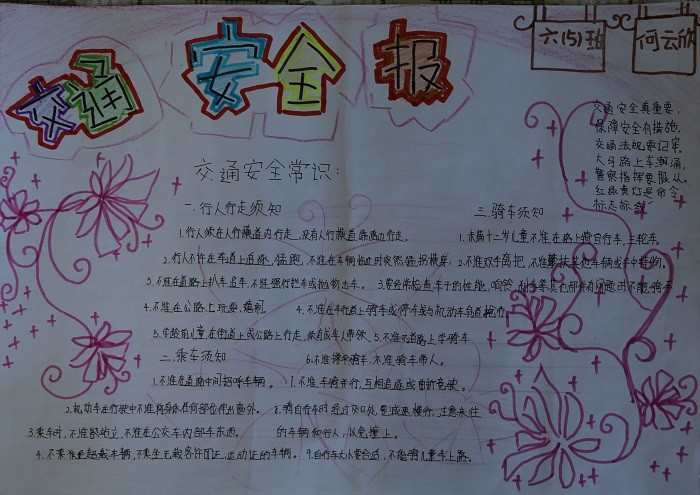 交通安全报
六(5)班
何云欣
交通安全真重要,
保障安全有措施,
交通法规要记牢,
大马路上车潮涌,
警察指挥要服从,
红绿黄灯是命令,
交通安全常识:
一.行人行走须知
1.行人须在人行横道内行走,没有人行横道靠路边行走。
2.行人不许在车道上追逐、猛跑,不准在车辆临近时突然
3.不准在道路上扒车、追车,不准强行拦车或抛物击车。
4.不准在公路上玩耍、嬉闹。
5.学龄前儿童在街道上或公路上行走,须有成年人带领。
二.乘车须知
1.不准在道路中间招呼车辆。
2.机动车在行驶中不准将身体任何部份伸出窗外。
3.乘车时,不准站立,不准在公交车内
4.不乘坐超载车辆,不乘坐无载客许可证、运动证的车辆。
三.骑车须知
1.未满十二岁儿童不准在路上骑自行车、三轮车。
2.不准双手离把,不准攀扶其他车辆或手中持物。
3.要经常检查车子的性能,响铃、刹车
4.不准在车行道上骑车或停车或与机动车争道抢行。
5.不准在道路上学骑车。
6.不准骑车带人。
7.不准车辆并行、互相追逐或曲折竞驶。
8.骑自行车时经过交叉路口,要减速慢行、注意来往
的车辆和行人,以免撞上。
9.自行车大小要合适,不能骑儿童车上路。